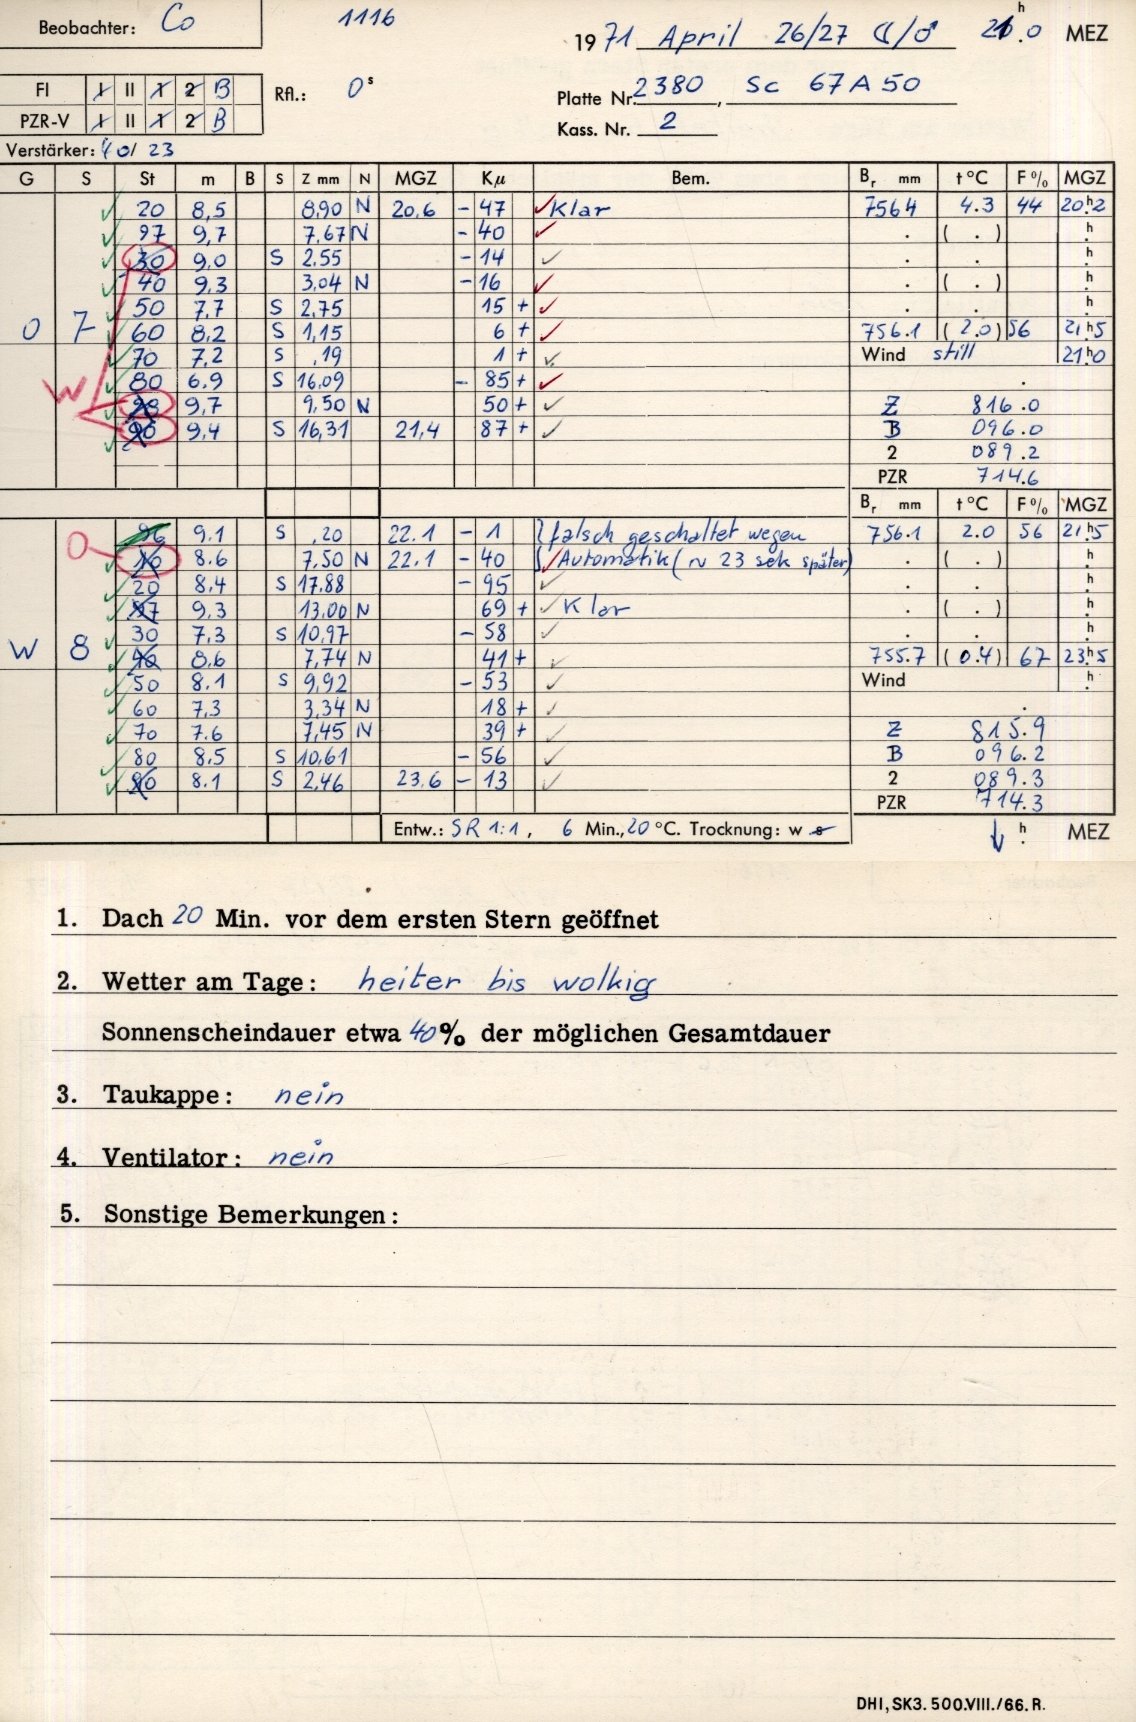 Beobachter: Co 1116 1971 April 26/27 ☾/♂ 21h.0 MEZ
FI I II 1 2 B Rfl.: 0s Platte Nr. 2380, Sc 67A50
PZR-V I II 1 2 B Kass. Nr. 2
Verstärker: 40/23
G S St m B S Z mm N MGZ Kμ Bem. Br mm t °C F % MGZ
20 8,5 8,90 N 20,6 - 47 Klar 756.4 4.3 44 20h2
97 9,7 7,67 N - 40 . ( . ) h
30 9,0 S 2.55 - 14 . . h
40 9,3 3,04 N - 16 . ( . ) h
50 7,7 S 2,75 15 + . . h
O 7 60 8,2 S 1,15 6 + 756.1 (2.0) 56 21h5
70 7,2 S ,19 1 + Wind still 21h0
W 80 6,9 S 16,09 - 85 + .
9,7 9,50 N 50 + Z 816.0
90 9,4 S 16,31 21,4 87 + B 096.0
2 089.2
PZR 714.6
Br mm t °C F % MGZ
O 96 9.1 S ,20 22.1 - 1 falsch geschaltet wegen 756.1 2.0 56 21h5
10 8.6 7,50 N 22.1 - 40 Automatik (~ 23 sek später) . ( . ) h
20 8,4 S 17,88 - 95 . . h
97 9,3 13,00 N 69 + Klar . ( . ) h
30 7,3 S 10,97 - 58 . . h
W 8 40 8,6 7,74 N 41 + 755.7 (0.4) 67 23h5
50 8.1 S 9,92 - 53 Wind h
60 7,3 3,34 N 18 + .
70 7.6 7,45 N 39 + Z 815.9
80 8,5 S 10,61 - 56 B 096.2
90 8.1 S 2,46 23,6 - 13 2 089.3
PZR 714.3
Entw.: SR 1:1, 6 Min., 20 °C. Trocknung: w s ↓ h MEZ
1. Dach 20 Min. vor dem ersten Stern geöffnet
2. Wetter am Tage: heiter bis wolkig
Sonnenscheindauer etwa 40% der möglichen Gesamtdauer
3. Taukappe: nein
4. Ventilator: nein
5. Sonstige Bemerkungen:
DHI, SK3. 500.VIII./66. R.